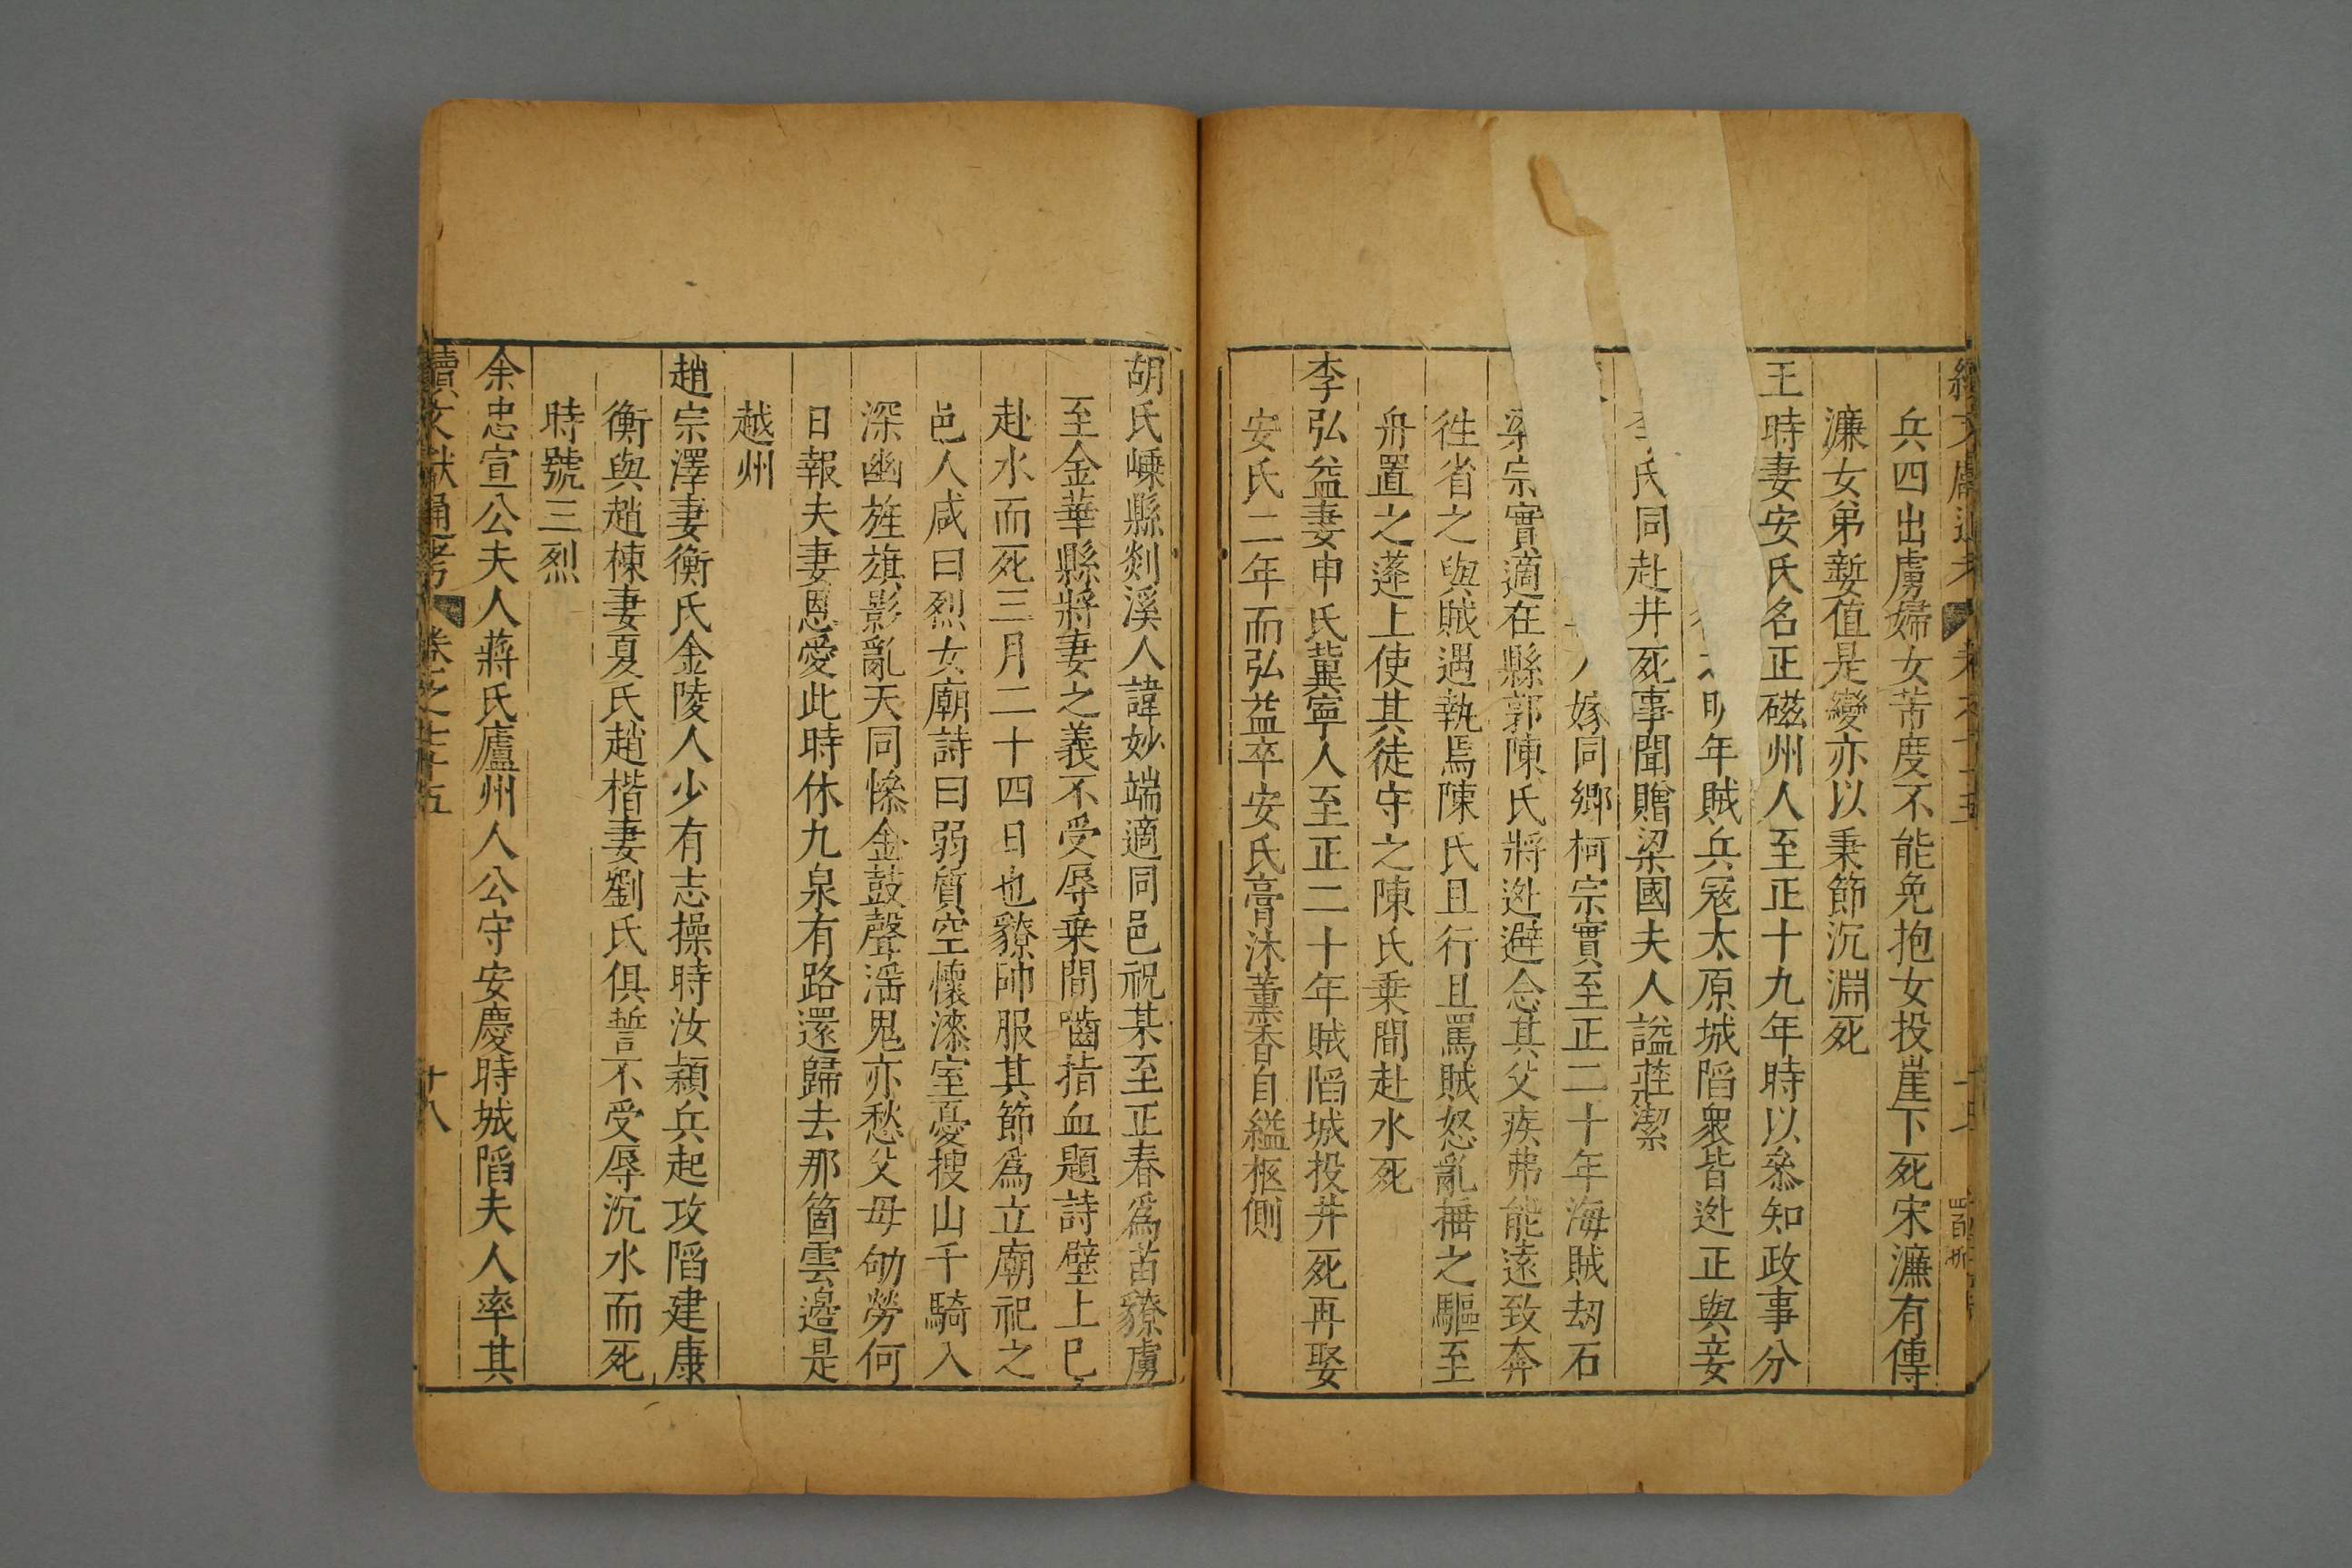 兵四出虜婦女芾度不能免抱女投崖下死宋濂有傳
濂女弟㜞值是變亦以秉節沉淵死
王時妻安氏名正磁州人至正十九年時以叅知政事分
年賊兵寇太原城䧟衆皆迯正與妾
氏同赴井死事聞贈梁國夫人謚莊潔
嫁同鄉柯宗實至正二十年海賊刼石
宗實適在縣郭陳氏將迯避念其父疾弗能遠致奔
徃省之與賊遇執焉陳氏且行且罵賊怒亂捶之驅至
舟置之蓬上使其徒守之陳氏乗間赴水死
李弘益妻申氏冀寧人至正二十年賊䧟城投井死再娶
安氏二年而弘益卒安氏膏沐薰香自縊柩側
胡氏嵊縣剡溪人諱妙端適同邑祝某至正春爲苗獠虜
至金華縣將妻之義不受辱乗間嚙指血題詩壁上已
赴水而死三月二十四日也獠帥服其節爲立廟祀之
邑人咸曰烈女廟詩曰弱質空懷漆室憂搜山千騎入
深幽旌旗影亂天同慘金鼓聲滛鬼亦愁父母劬勞何
日報夫妻恩愛此時休九泉有路還歸去那箇雲邉是
越州
趙宗澤妻衡氏金陵人少有志操時汝潁兵起攻䧟建康
衡與趙棟妻夏氏趙楷妻劉氏俱誓不受辱沉水而死
時號三烈
余忠宣公夫人蔣氏廬州人公守安慶時城䧟夫人率其
續文獻通考 卷之七十五 十八